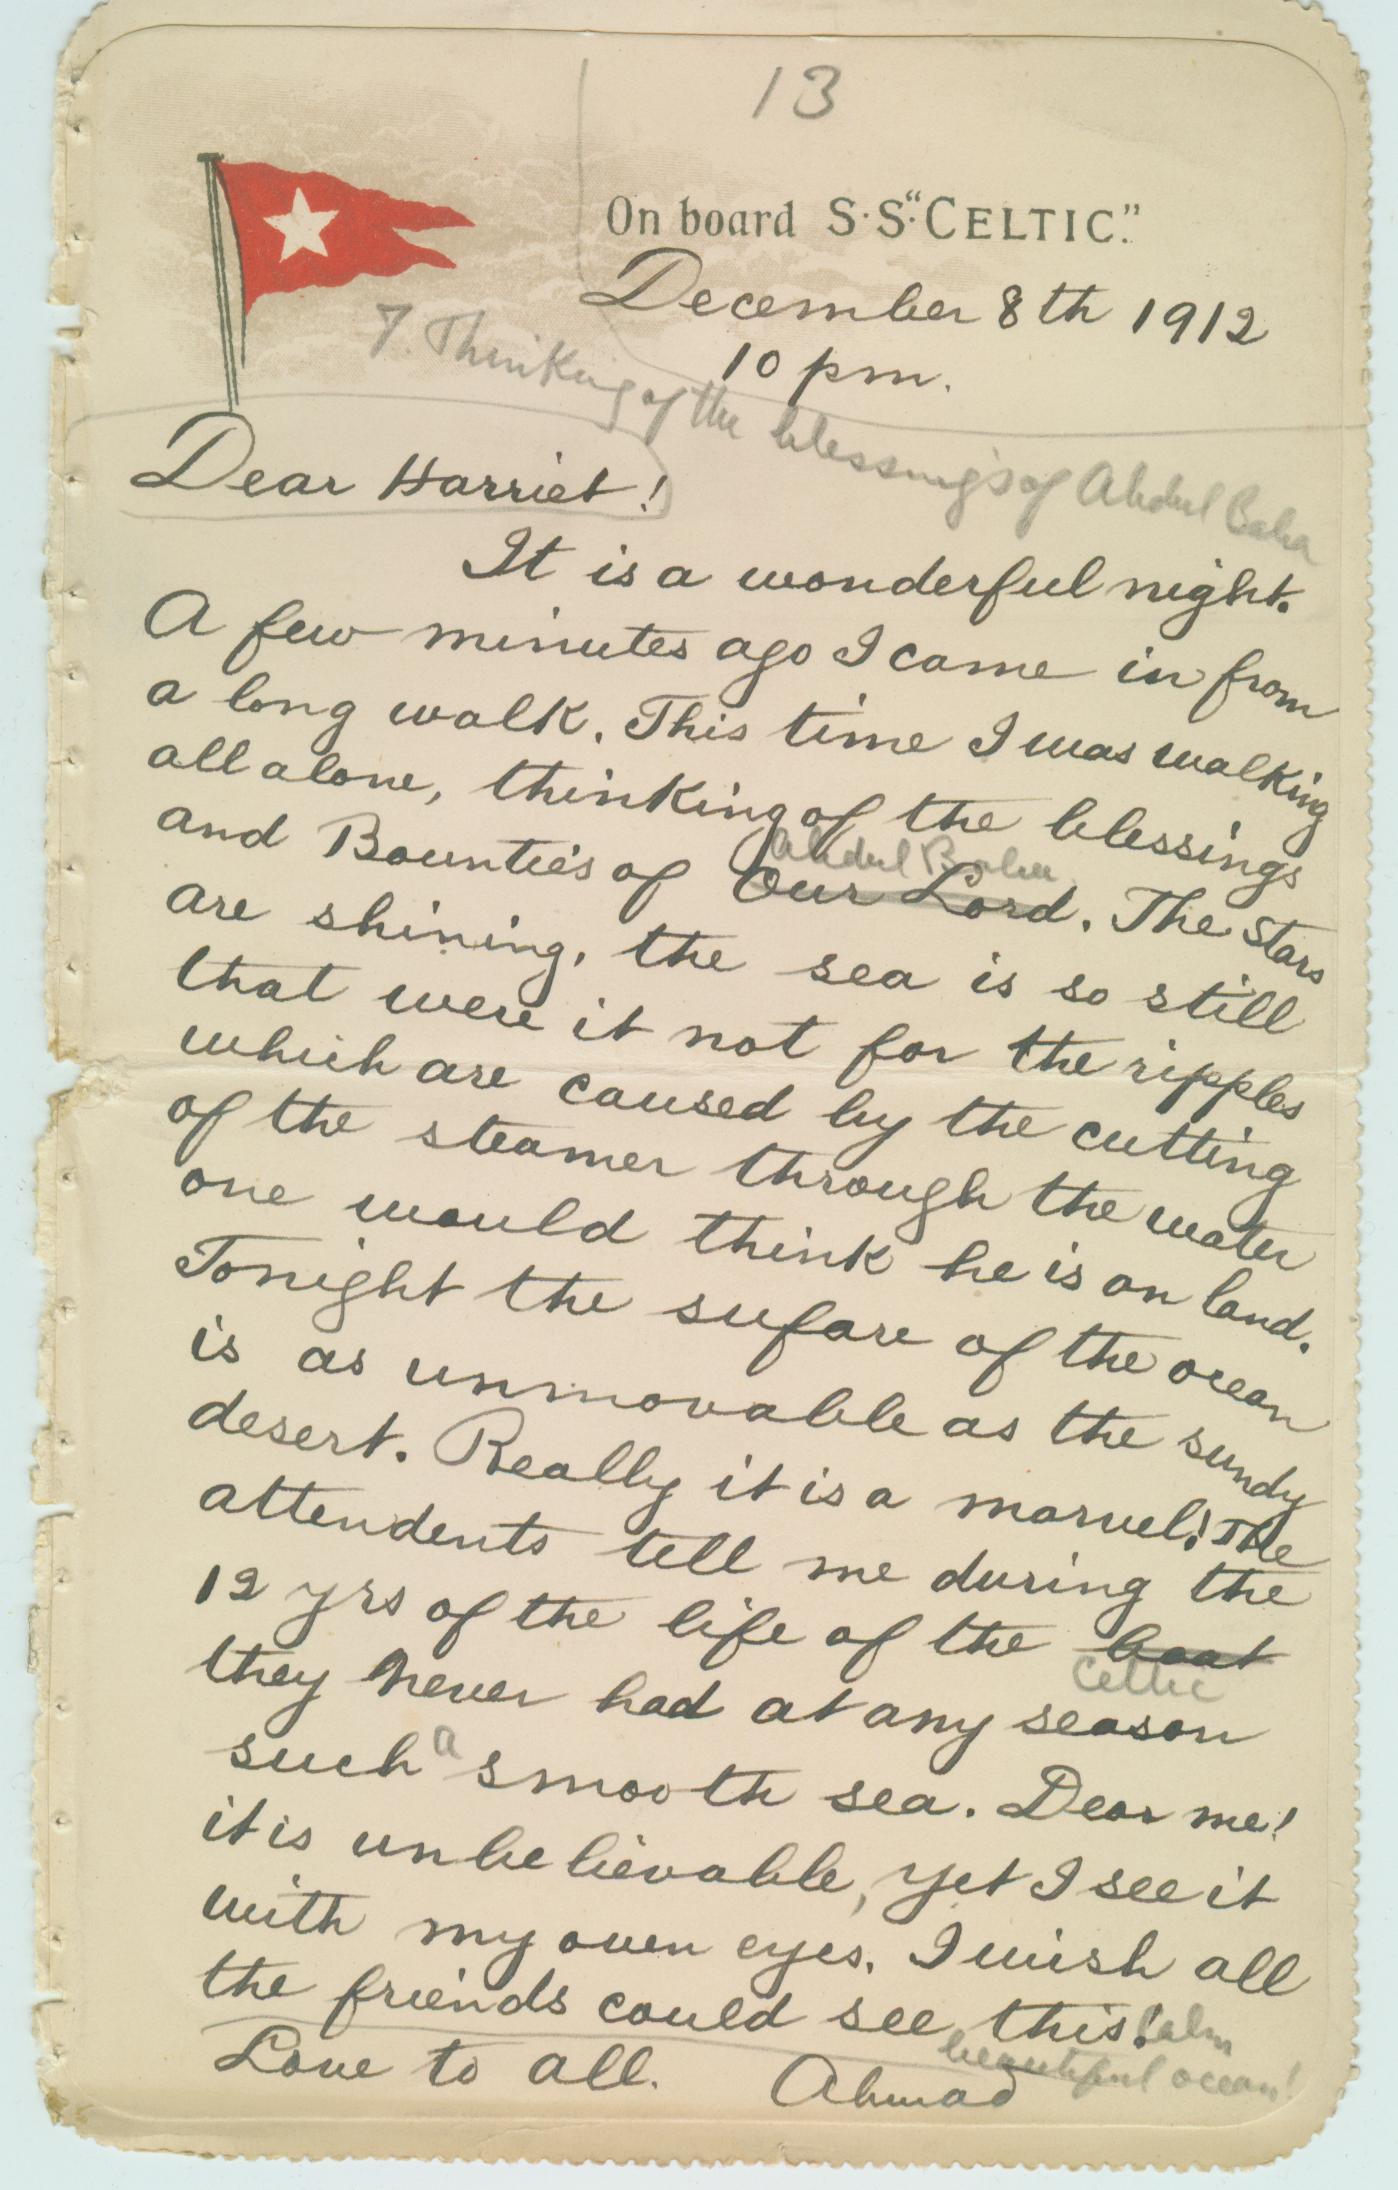 13
On board S·S·"CELTIC."
December 8th 1912
10 pm.
7. Thinking of the blessings of Abdul Baha
Dear Harriet!
It is a wonderful night.
A few minutes ago I came in from
a long walk. This time I was walking
all alone, thinking of the blessings
Abdul Baha
and Bounties of Our Lord. The stars
are shining, the sea is so still
that were it not for the ripples
which are caused by the cutting
of the steamer through the water
one would think he is on land.
Tonight the sufare of the ocean
is as unmovable as the sundy
desert. Really it is a marvel! The
attendents tell me during the
12 yrs of the life of the boat
Celtic
they never had at any season
such a smooth sea. Dear me!
it is unbelievable, yet I see it
with my own eyes. I wish all
the friends could see this! calm
beautiful ocean!
Love to all. Ahmad